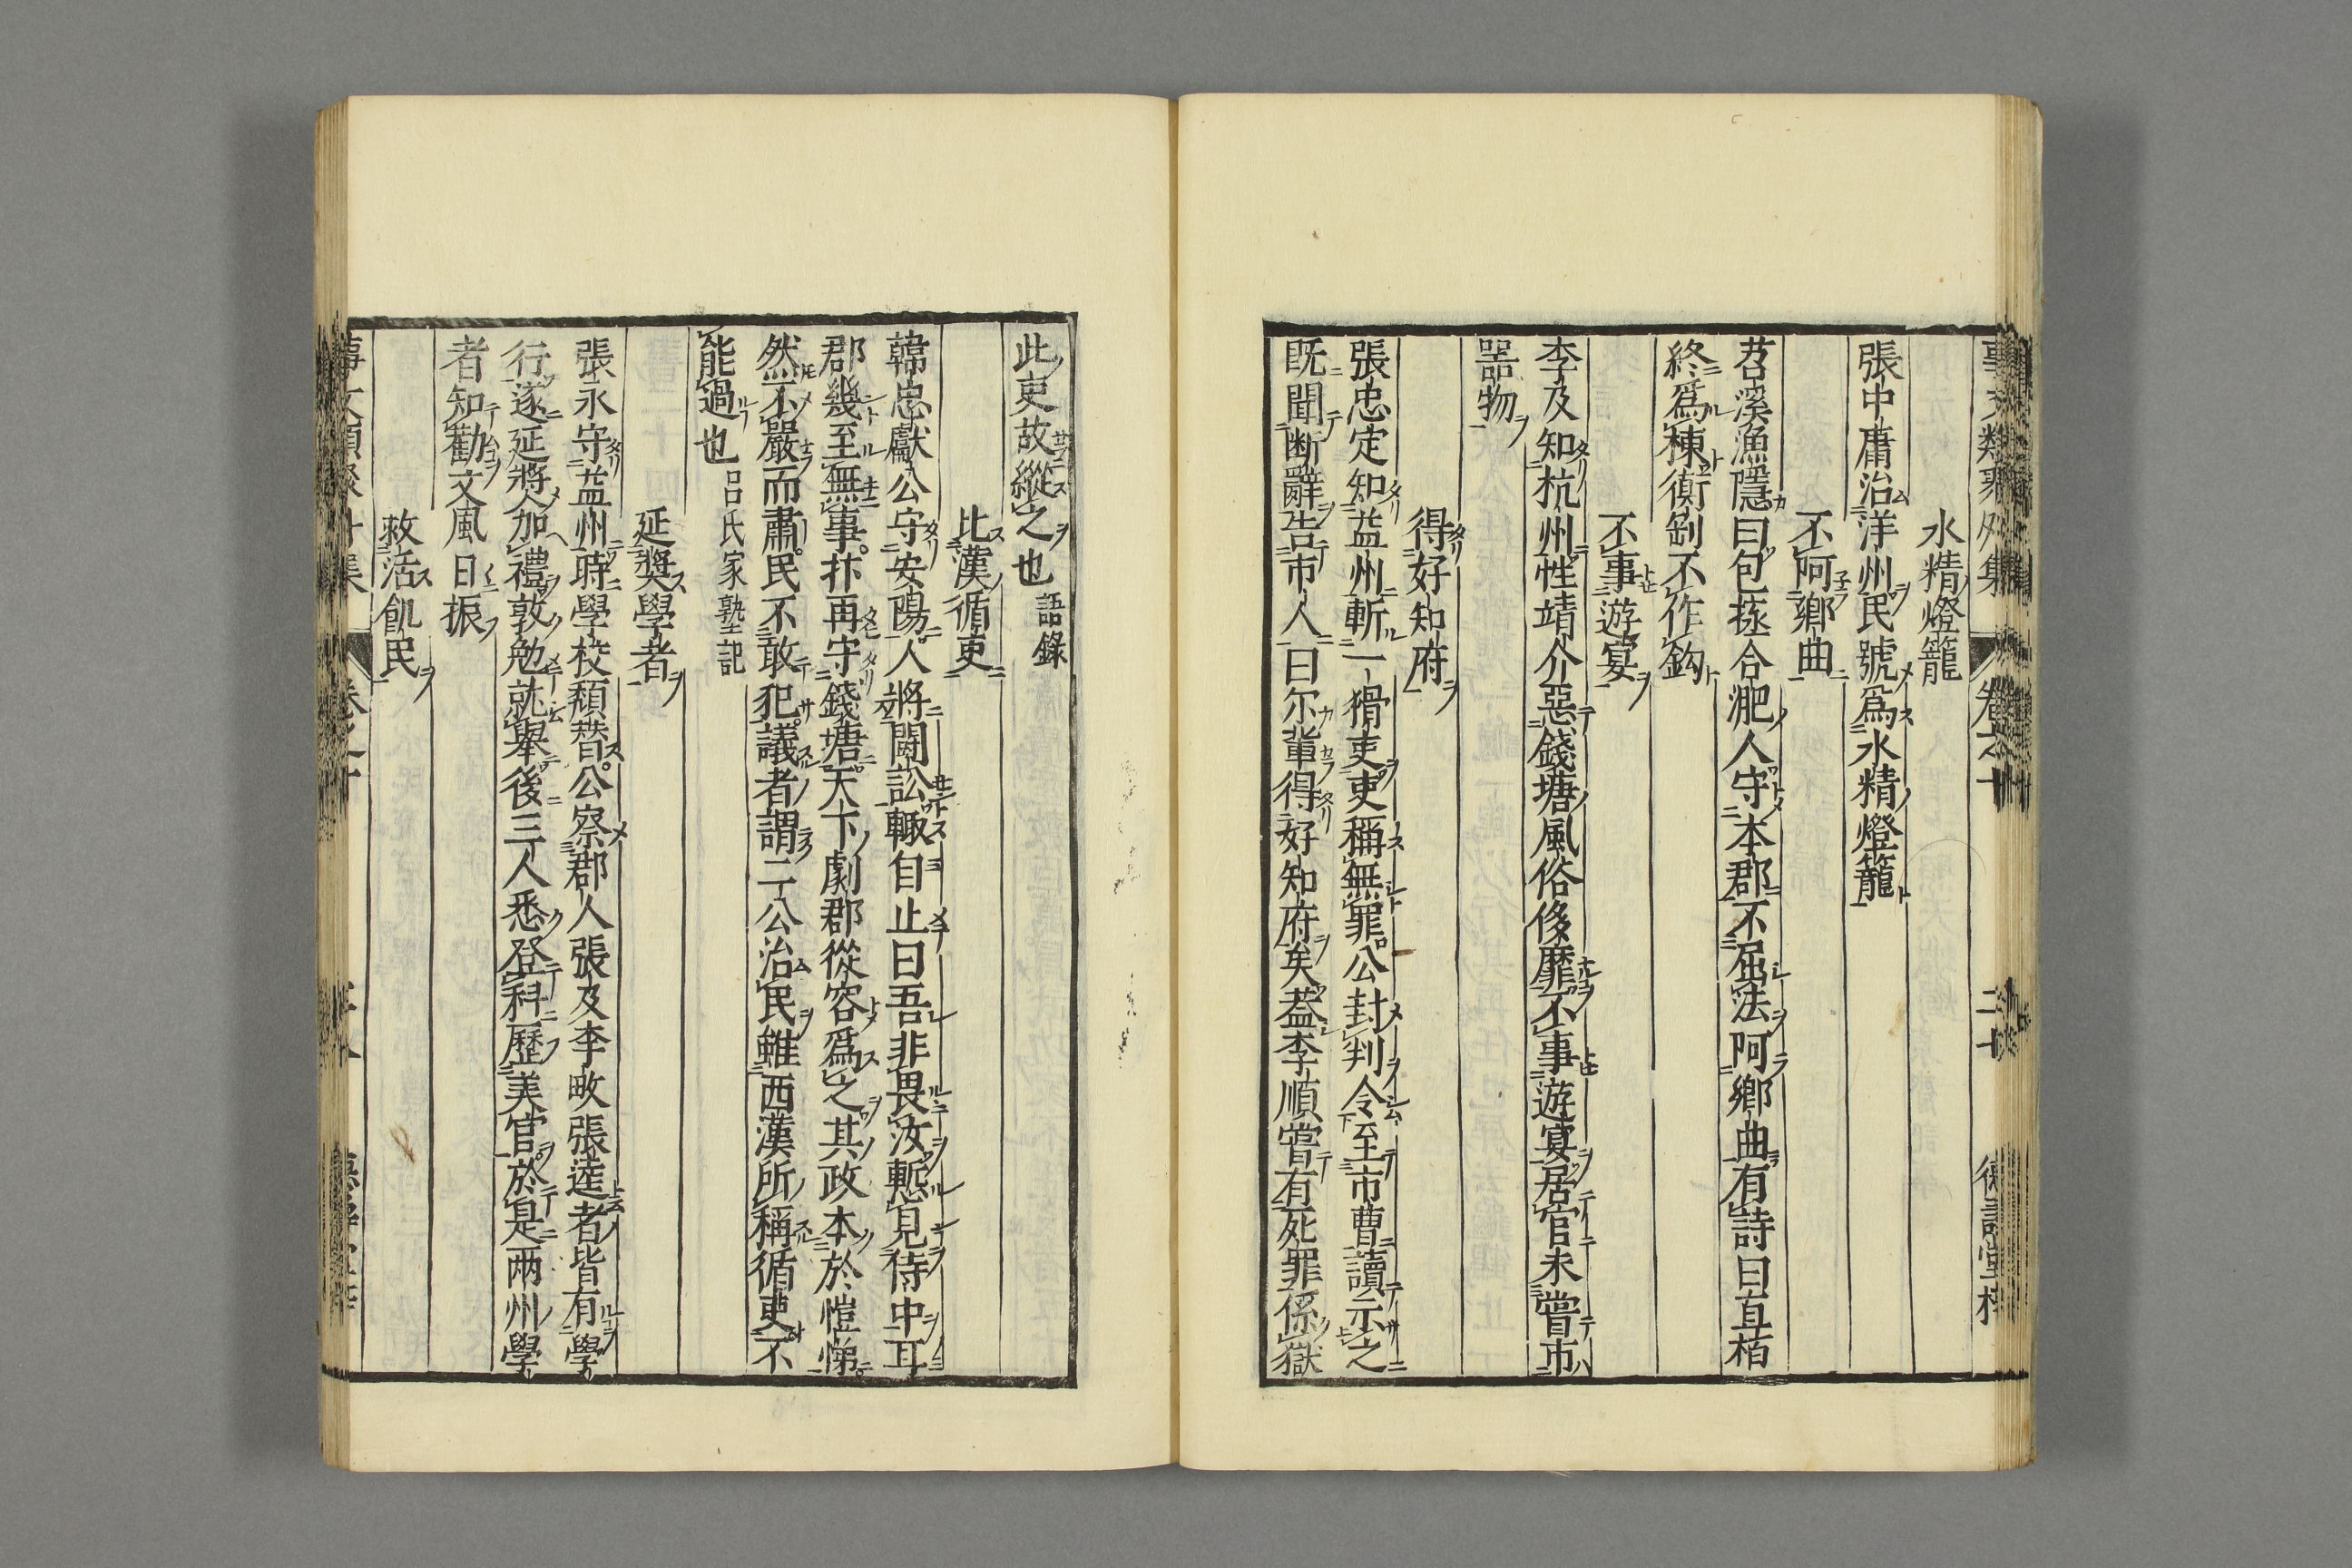 水精燈籠
張中庸治洋州民號爲水精燈籠
不阿鄉曲
苕溪漁隱曰包拯合淝人守本郡不屈法阿鄉曲有詩曰直栢
終爲棟衡剑不作鈎
不事遊宴
李及知杭州性靖介惡錢塘風俗侈靡不事遊宴居官未嘗市
器物
得好知府
張忠定知益州斬一猾吏吏稱無罪公封判令至市曹讀示之
既聞断辭告市人曰尔輩得好知府矣葢李順嘗有死罪係獄
此吏故縱之也語錄
比漢循吏
韓忠獻公守安陽人將鬪訟輙自止曰吾非畏汝慙見侍中耳
郡幾至無事抃再守錢塘天下劇郡從容爲之其政本於愷悌
然不嚴而肅民不敢犯議者謂二公治民雖西漢所稱循吏不
能過也呂氏家塾記
延奬學者
張永守益州時學校頹替公察郡人張及李畋張逵者皆有學
行遂延將人加禮敦勉就舉後三人悉登科歷美官於是兩州學
者知勸文風日振
救活飢民